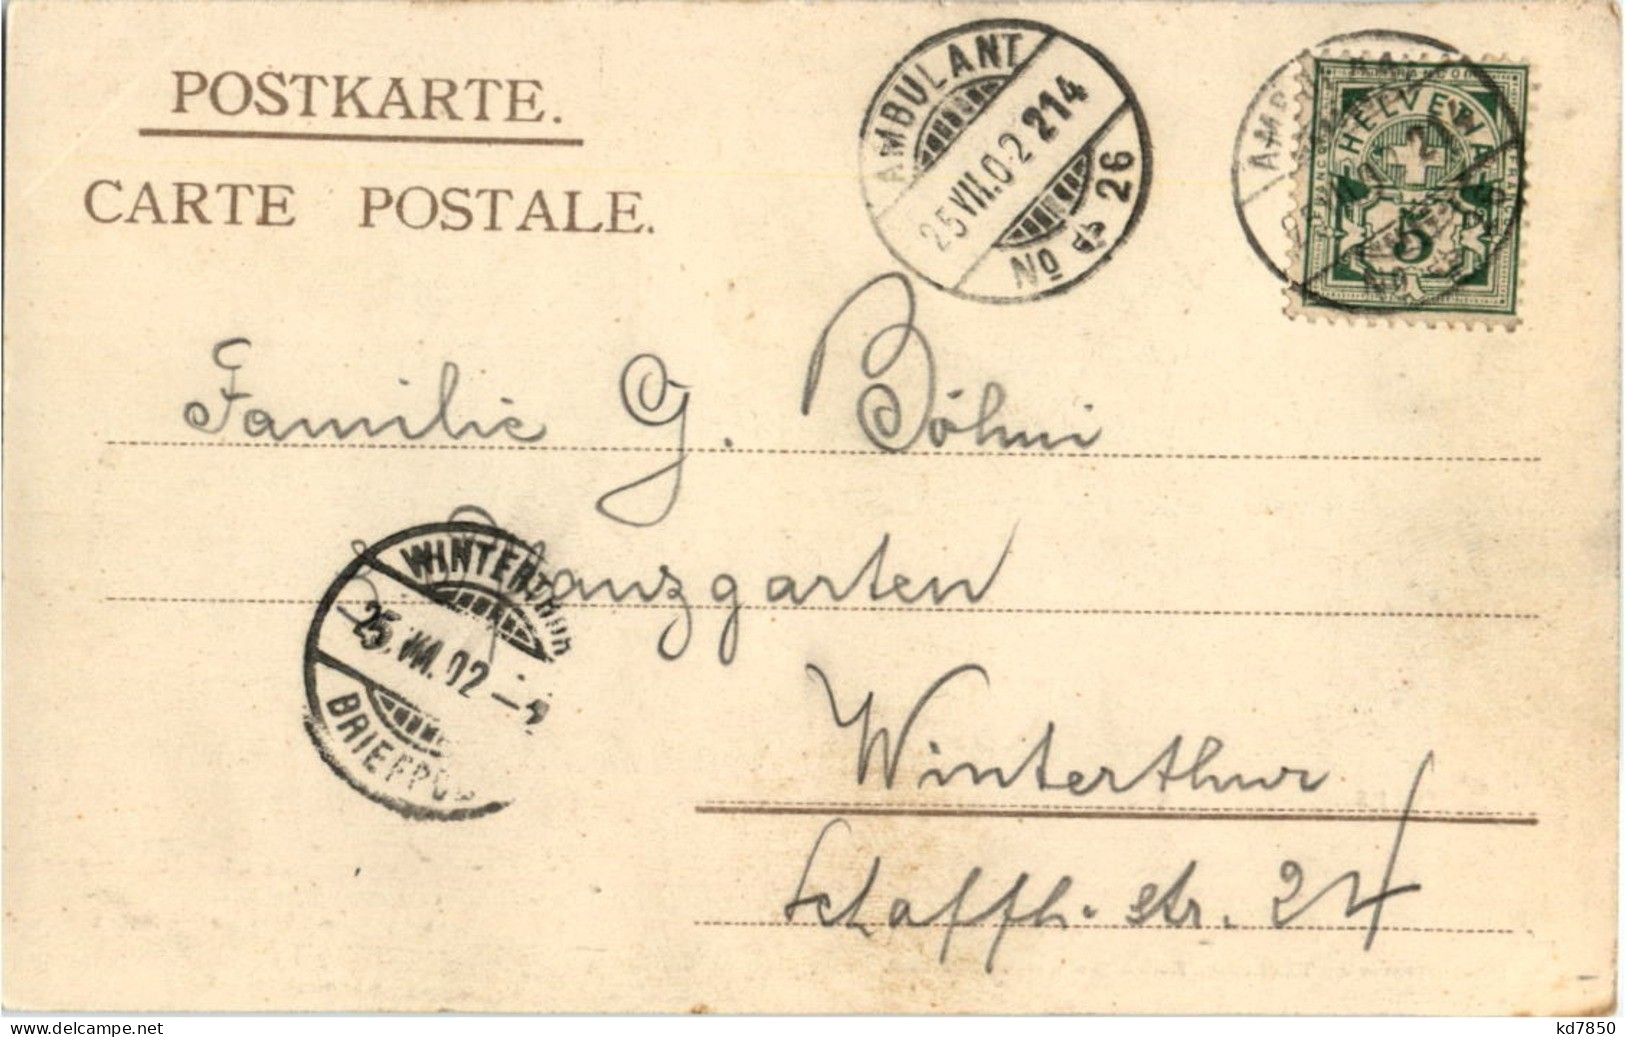 POSTKARTE.
CARTE POSTALE.
AMBULANT
25.VII.02 214
No 26
HELVETIA
5
Familie G. Böhni
WINTERTHUR
25.VII.02
BRIEFPO
Winterthur
Schaffh. str. 24
www.delcampe.net
kd7850